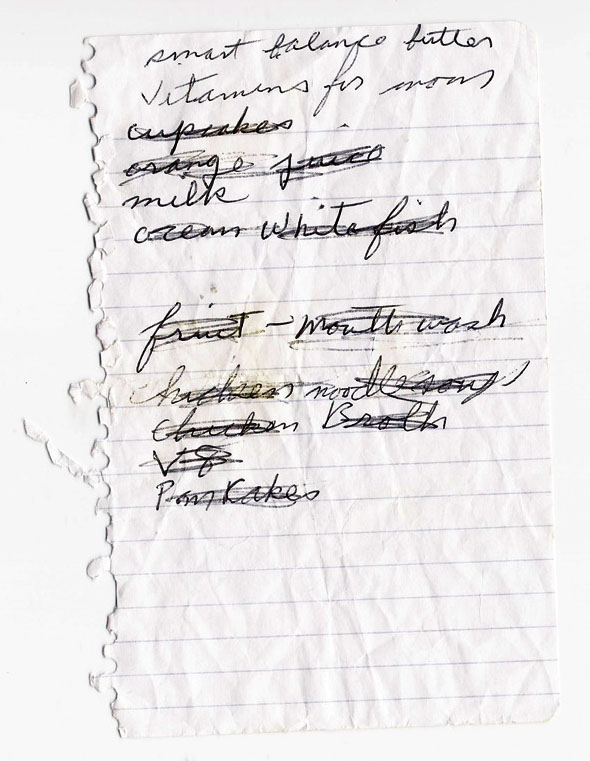 smart balance butter
Vitamins for moms
cupcakes
orange juice
milk
ocean White fish
fruit - mouth wash
chicken noodle soup
chicken Broth
V8
PanKakes